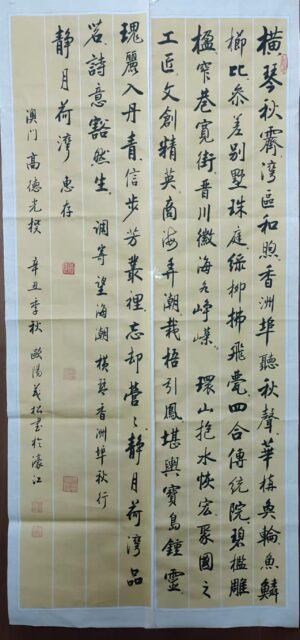 橫琴秋霽灣區和煦香洲埠聽秋聲華構奐輪魚鱗
櫛比參差別墅珠庭綠柳拂飛甍四合傳統院碧檻雕
楹窄巷寬街晉川徽海各崢嶸 環山抱水恢宏聚國之
工匠文創精英商海弄潮栽梧引鳳堪輿寶島鐘靈
瑰麗入丹青信步芳叢裡忘却營〻靜月荷灣品
茗詩意豁然生 調寄望海潮橫琴香洲埠秋行
靜月荷灣 惠存
澳门 高德光撰 辛丑季秋 歐陽 松書於濠江